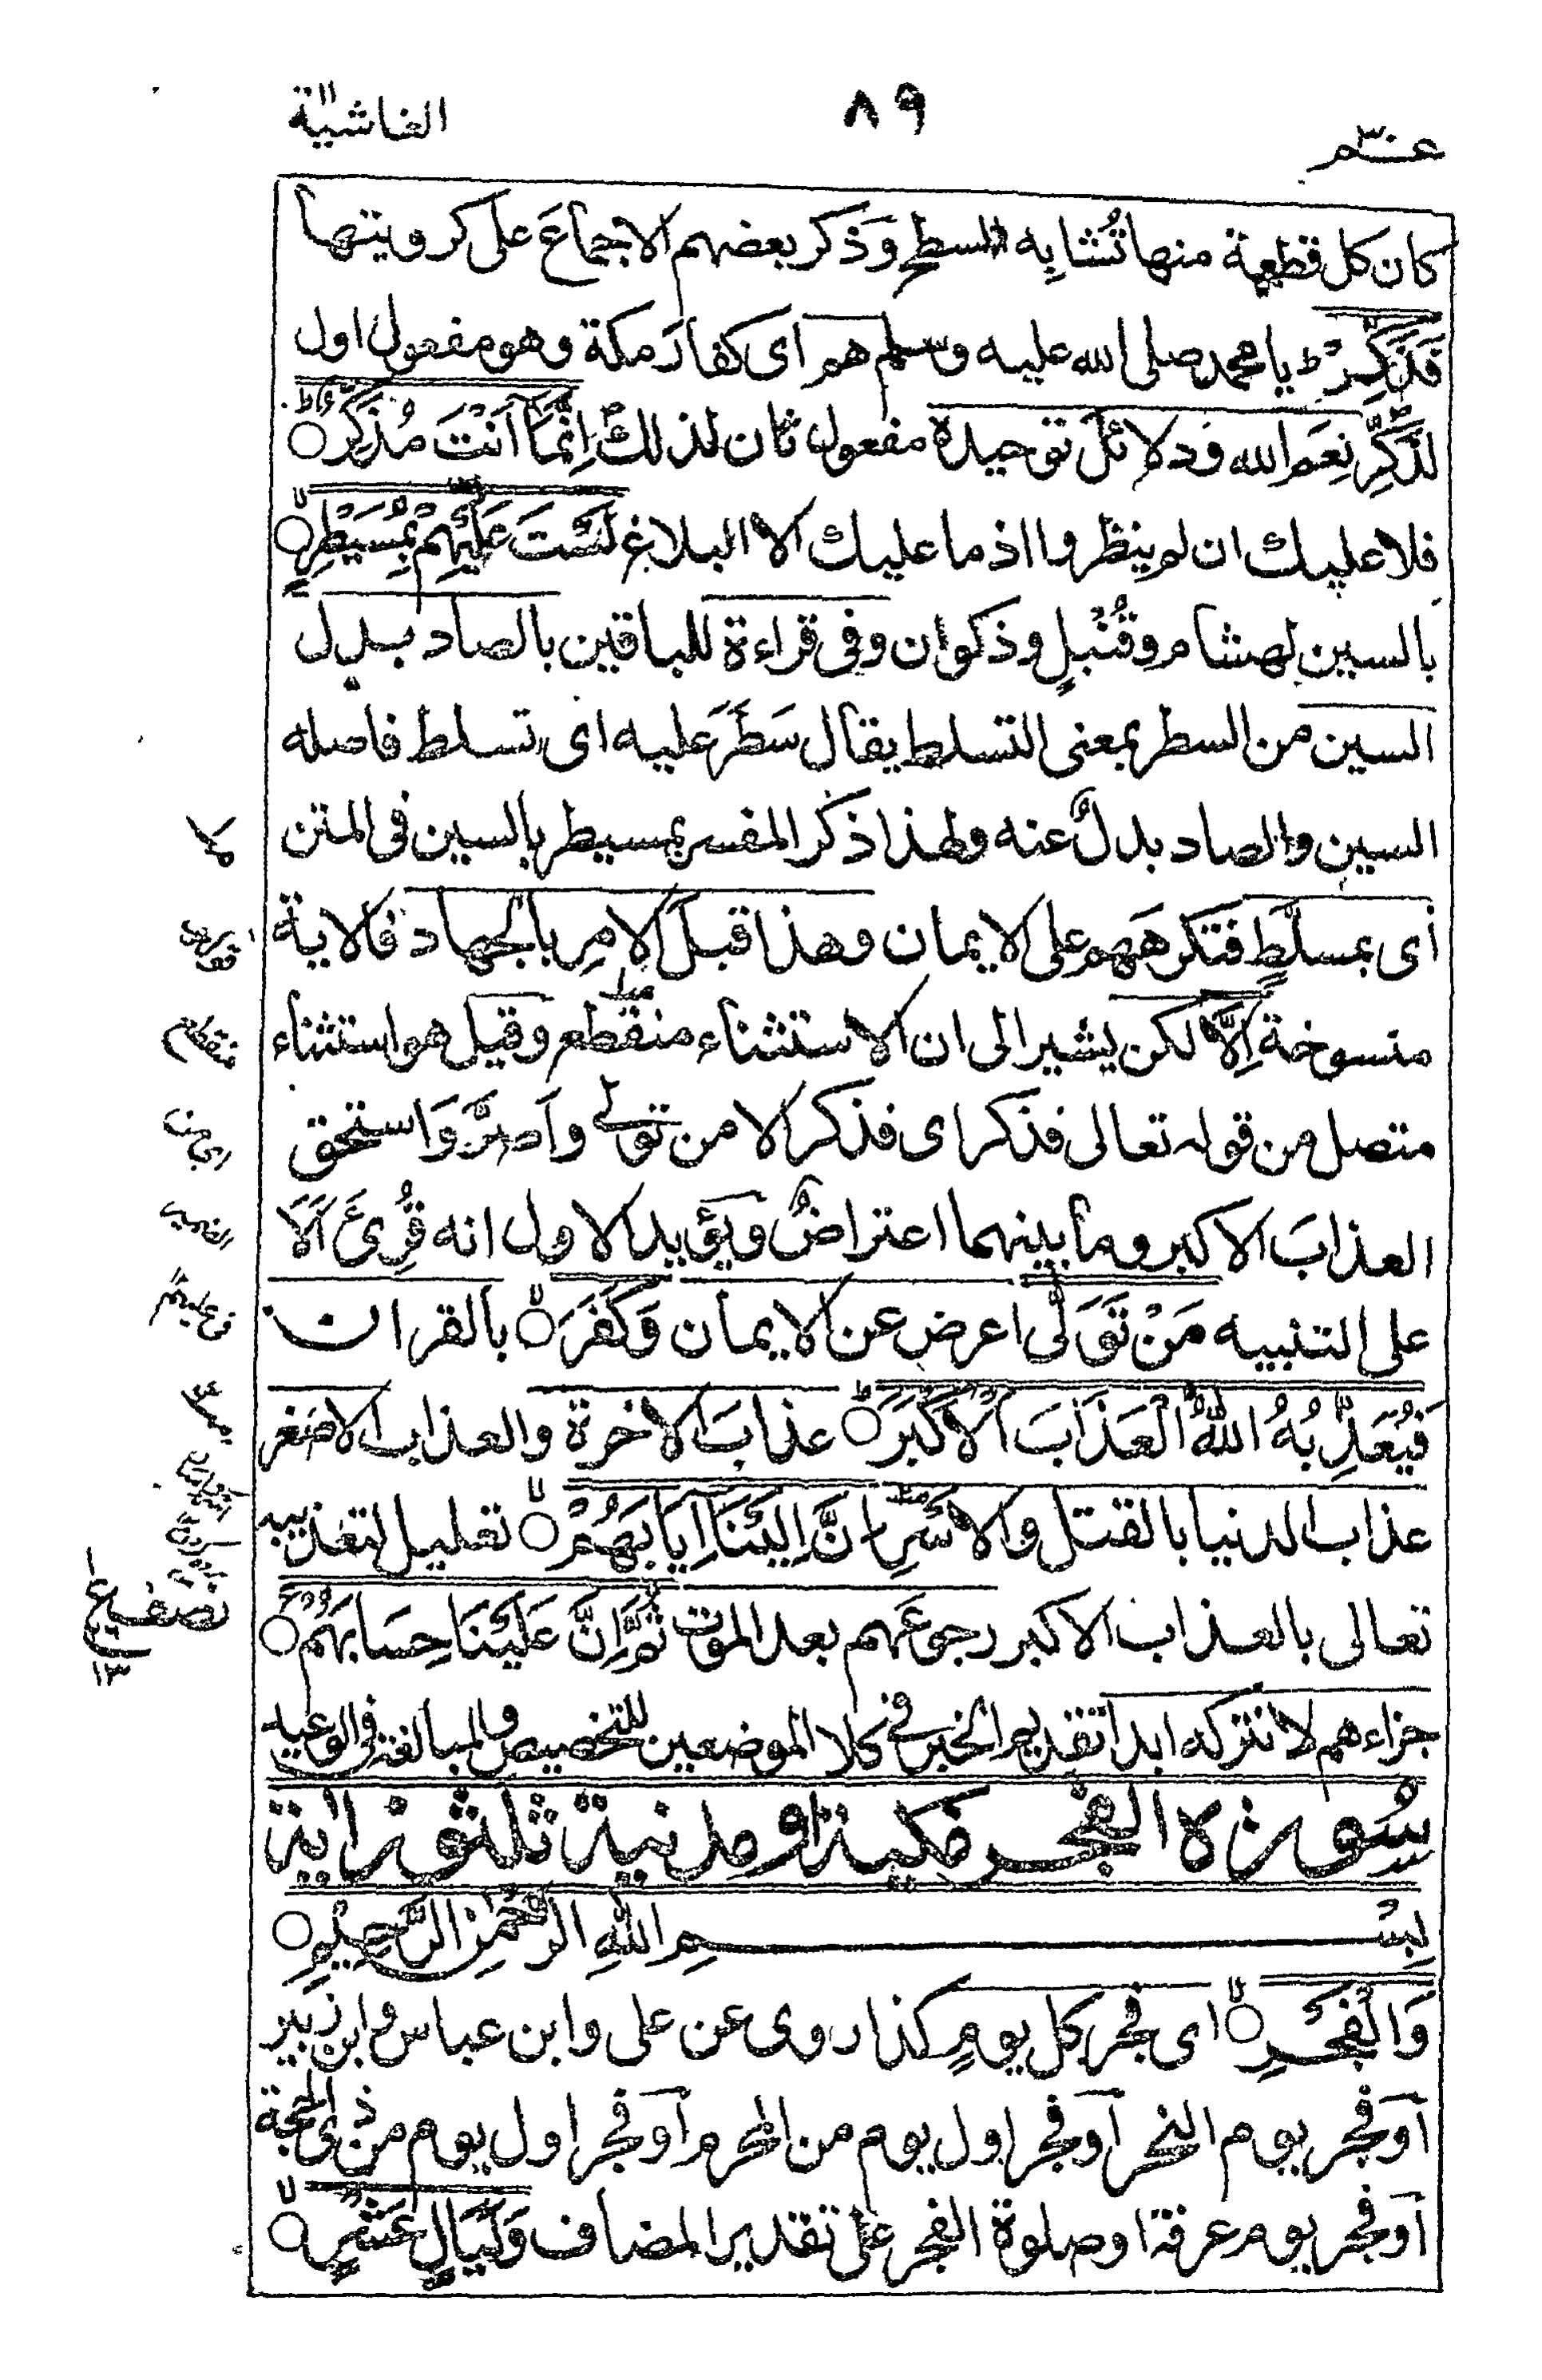 عم ٣٠
٨٩
الغاشية
كان كل قطعة منها تُشابِه السطح وَذكر بعضهم الاجماعَ على كرويتها
فَذَكِّرْ يا محمد صلى الله عليه وسلم هم اى كفارَ مكة وهو مفعول اول
لذَكِّر نِعَم الله ودلائلَ توحيده مفعول ثان لذلك اِنَّمَآ اَنْتَ مُذَكِّرٌ ○
فلا عليك ان لم ينظروا اذ ما عليك الا البلاغ لَسْتَ عَلَيْهِمْ بِمُسَيْطِرٍ ○
بالسين لهشام وقُنْبُلٍ وذكوان وفى قراءة للباقين بالصاد بدل
السين من السطر بمعنى التسلط يقال سَطَرَ عليه اى تسلط فاصله
السين والصاد بدلٌ عنه ولهذا ذكر المفسر بمسيطر بالسين فى المتن
اى بمسلَّطٍ فتكرههم على الايمان وهذا قبل الامرِ بالجهاد فالاية
منسوخة اِلَّا لكن يشير الى ان الاستثناء منقطع وقيل هو استثناء
متصل من قوله تعالى فذكر اى فذكر الا من تولى واَصرَّ وَاستحق
العذابَ الاكبر وما بينهما اعتراضٌ ويؤيد الاول انه قُرِئَ اَلَا
على التنبيه مَنْ تَوَلّٰى اعرض عن الايمان وَكَفَرَ ○ بالقران
فَيُعَذِّبُهُ اللّٰهُ الْعَذَابَ الْاَكْبَرَ ○ عذابَ الاخرة والعذاب الاصغر
عذاب الدنيا بالقتل والاسْرِ اِنَّ اِلَيْنَآ اِيَابَهُمْ ○ تعليل لتعذيبه
تعالى بالعذاب الاكبر رجوعَهم بعد الموت ثُمَّ اِنَّ عَلَيْنَا حِسَابَهُمْ ○
جزاءهم لا نتركه ابدا تقديم الخبر فى كلا الموضعين للتخصيص والمبالغة فى الوعيد
سُورَة الفجر مكية او مدنية ثلثون اية
بِسْمِ اللهِ الرَّحْمٰنِ الرَّحِيْمِ ○
وَالْفَجْرِ ○ اى فجر كل يومٍ كذا روى عن على وابن عباس وابن زبير
اَو فجر يوم النحر اَو فجر اول يوم من المحرم اَو فجر اول يوم من ذى الحجة
اَو فجر يوم عرفة او صلوة الفجر على تقدير المضاف وَلَيَالٍ عَشْرٍ ○
منقطع
١٣